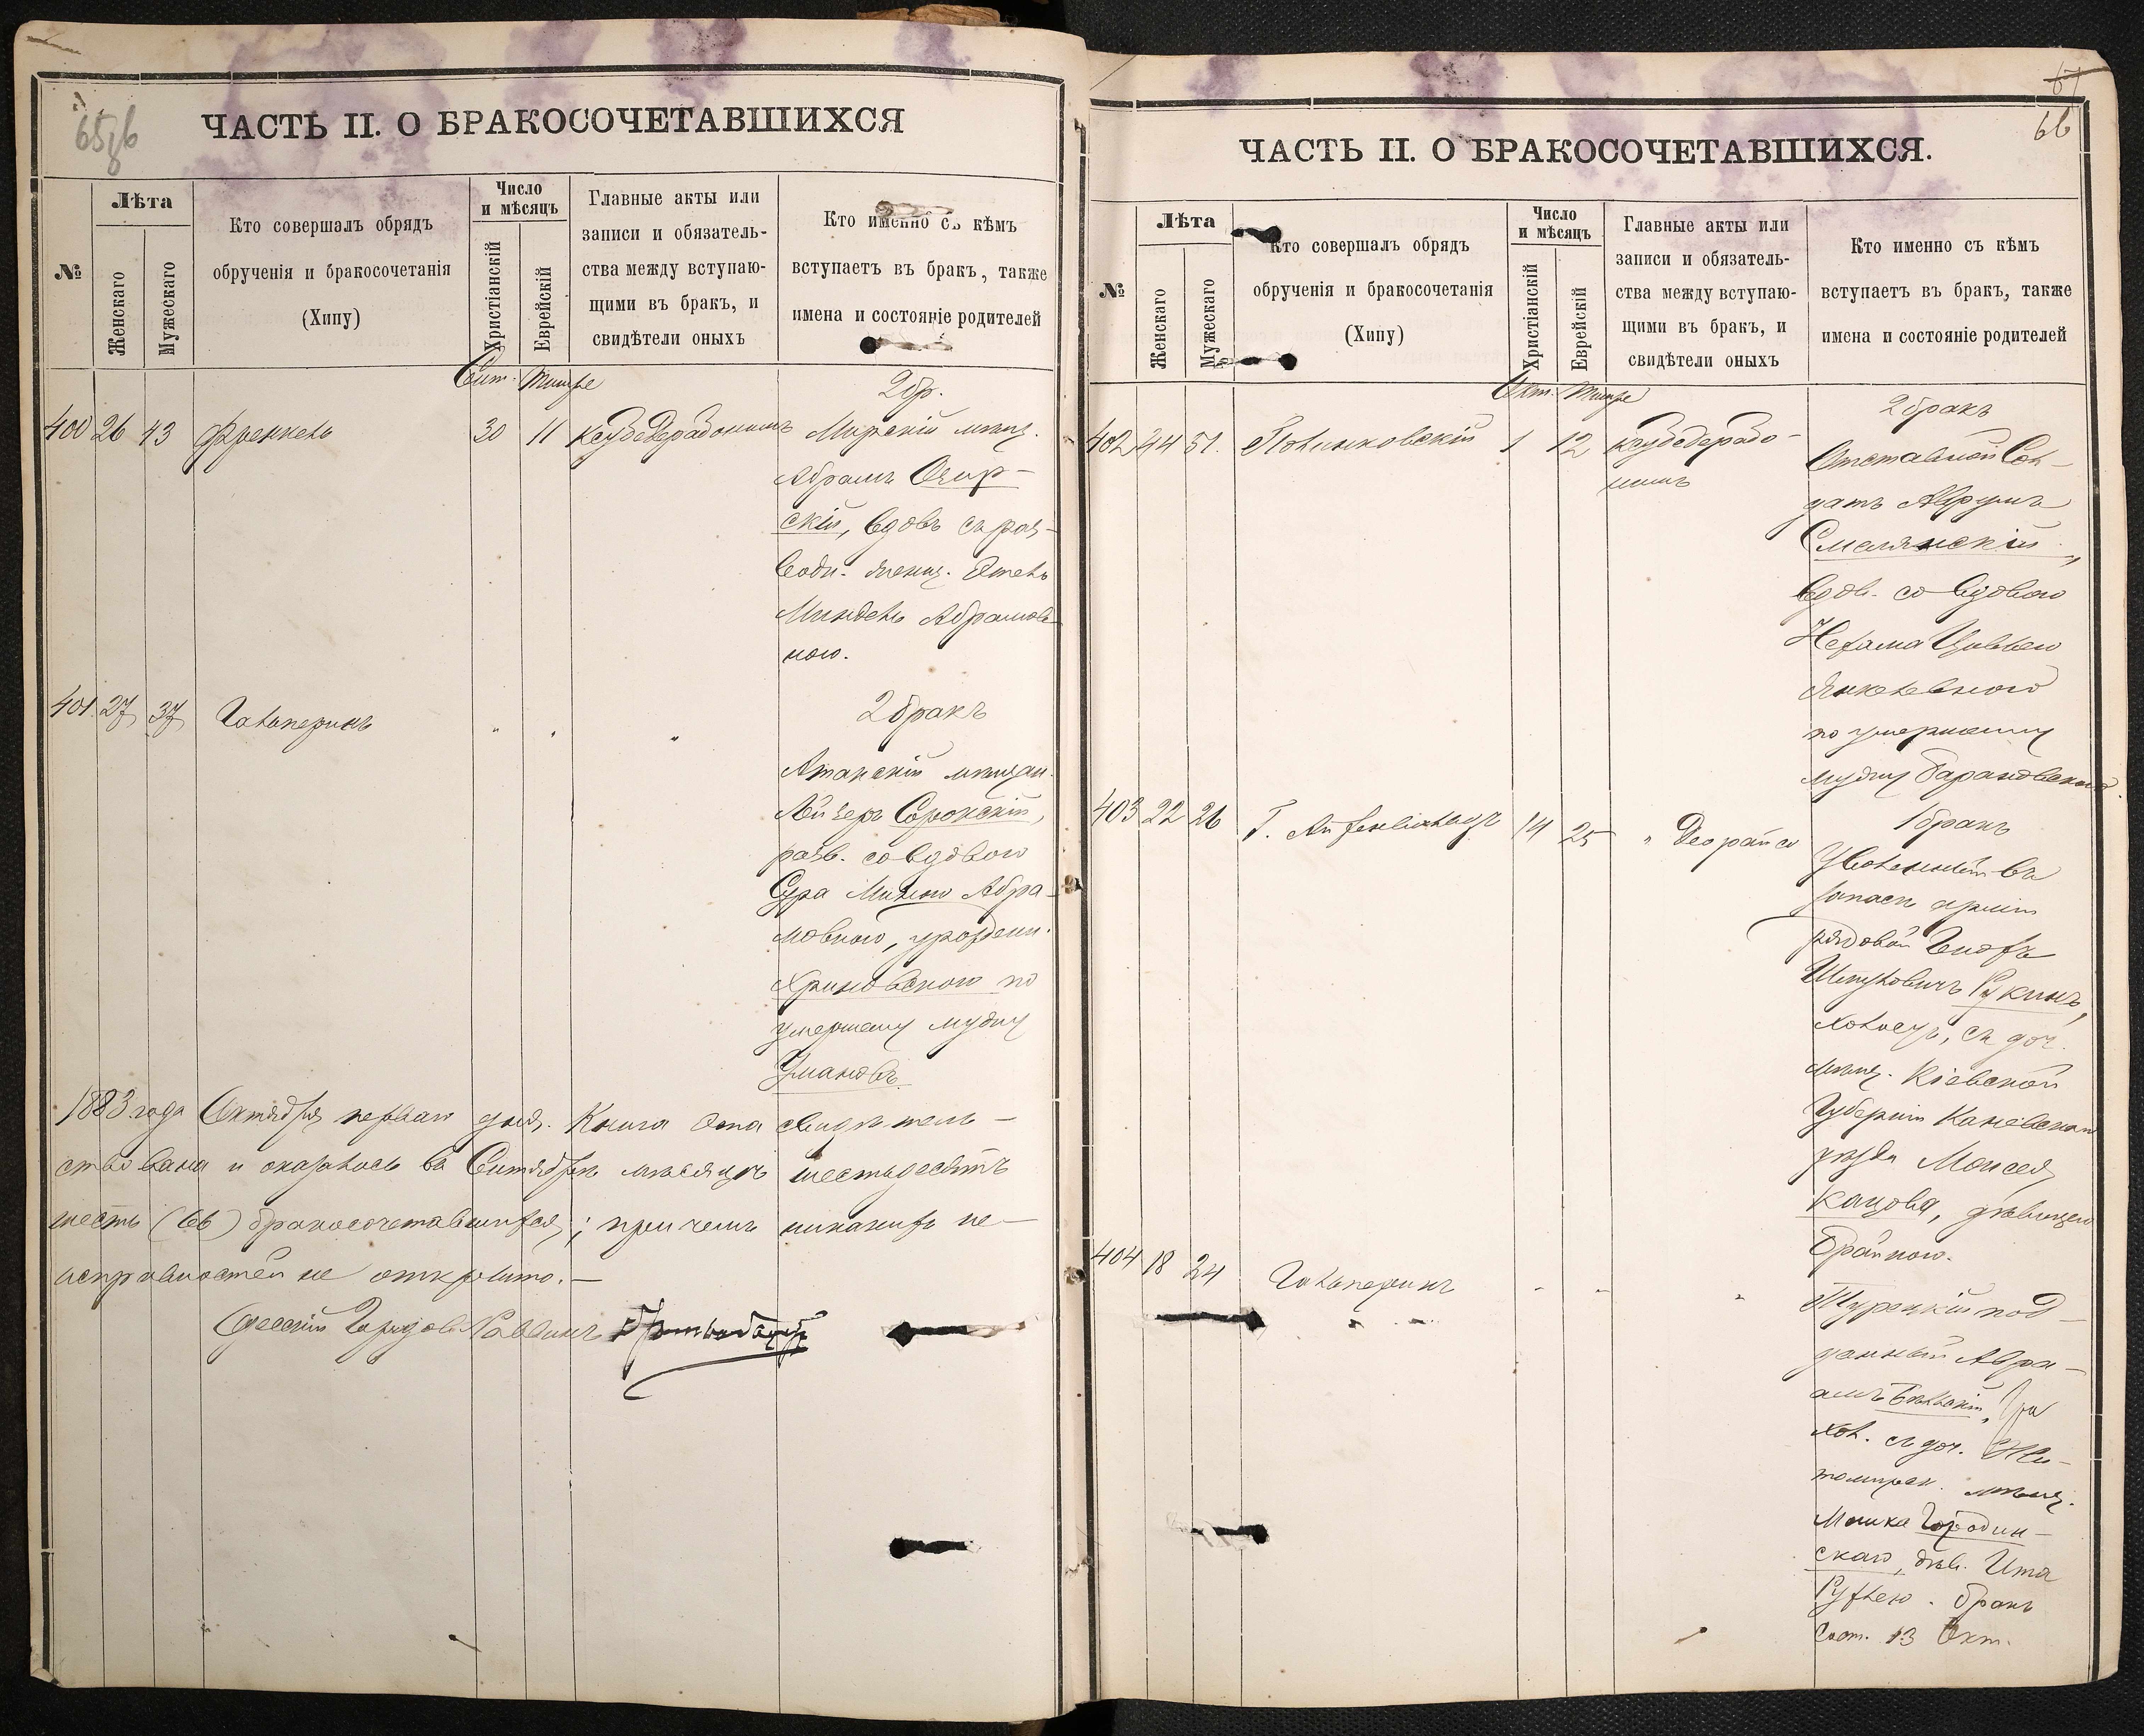 65об
ЧАСТЬ II. О БРАКОСОЧЕТАВШИХСЯ
№
Лѣта
Женскаго
Мужескаго
Кто совершалъ обрядъ
обрученія и бракосочетанія
(Хипу)
Число
и мѣсяцъ
Христіанскій
Еврейскій
Главные акты или
записи и обязатель-
ства между вступаю-
щими въ бракъ, и
свидѣтели оныхъ
Кто именно съ кѣмъ
вступаетъ въ бракъ, также
имена и состояніе родителей
Сент. Тишре
2 бр.
400 26 43 Френкель 30 11 Мирскій мѣщ.
Абрамъ Озир-
скій, вдовъ съ раз-
вод.
Миндель Абрамов-
ною.
401. 27 37 Гальперинъ " " "
2 бракъ
мѣщан.
Лейзеръ Сорокскій,
разв. со вдовою
Сура Абра-
мовною, урожден.
по
умершему мужу
Умановъ.
1883 года Октября перваго дня. Книга эта свидѣтель-
ствована и оказалось въ Сентябрѣ мѣсяцѣ шестьдесятъ
шесть (66) бракосочетавшихся; при чемъ никакихъ не-
исправностей не открыто.—
Одесскій Городов. Раввинъ
67
66
ЧАСТЬ II. О БРАКОСОЧЕТАВШИХСЯ.
№
Лѣта
Женскаго
Мужескаго
Кто совершалъ обрядъ
обрученія и бракосочетанія
(Хипу)
Число
и мѣсяцъ
Христіанскій
Еврейскій
Главные акты или
записи и обязатель-
ства между вступаю-
щими въ бракъ, и
свидѣтели оныхъ
Кто именно съ кѣмъ
вступаетъ въ бракъ, также
имена и состояніе родителей
Окт. Тишре
2 бракъ
402 44 51. 1 12
Отставной Сол-
датъ Аврумъ
Смелянскій,
вдов. со вдовою
Нехама Цивьею
Янкелевною
по умершему
мужу Барановскому.
1 бракъ
403 22 26 Г. 14 25 " Деорайсо
Уволенный въ
запасъ арміи
рядовой
Рукинъ,
холост., съ доч.
мѣщ. Кіевской
Губерніи Каневскаго
уѣзда Моисея
Кацова, дѣвицею
Брайною.
404 18 24 Гальперинъ " " "
Турецкій под-
данный Авра-
амъ
хол. съ доч. Жи-
томирск. мѣщ.
Мошка Городин-
скаго, дѣв. Ита
Рухлею. бракъ
сост. 13 Окт.